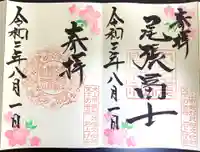 奉拝
尾張冨士
令和三年八月一日
奉拝
令和三年八月一日